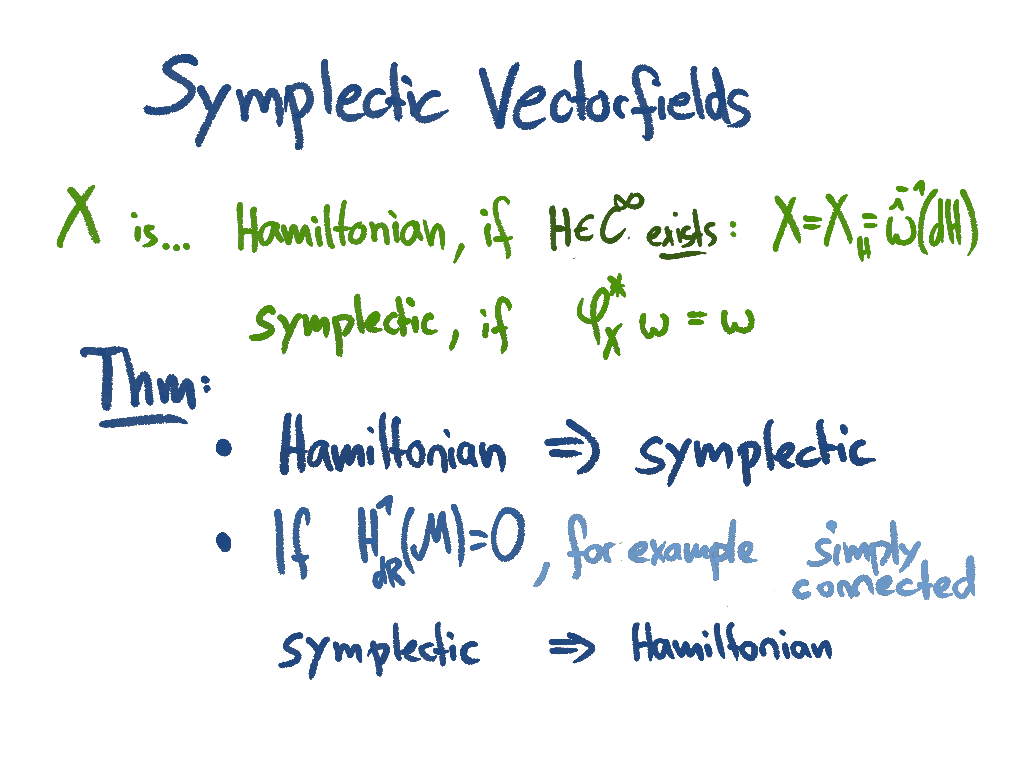 Symplectic Vectorfields
X is... Hamiltonian, if H∈C^∞ exists: X=X_H=ω̂^{-1}(dH)
symplectic, if φ_X^* ω = ω
Thm:
• Hamiltonian ⇒ symplectic
• If H^1_{dR}(M)=0, for example simply connected
symplectic ⇒ Hamiltonian